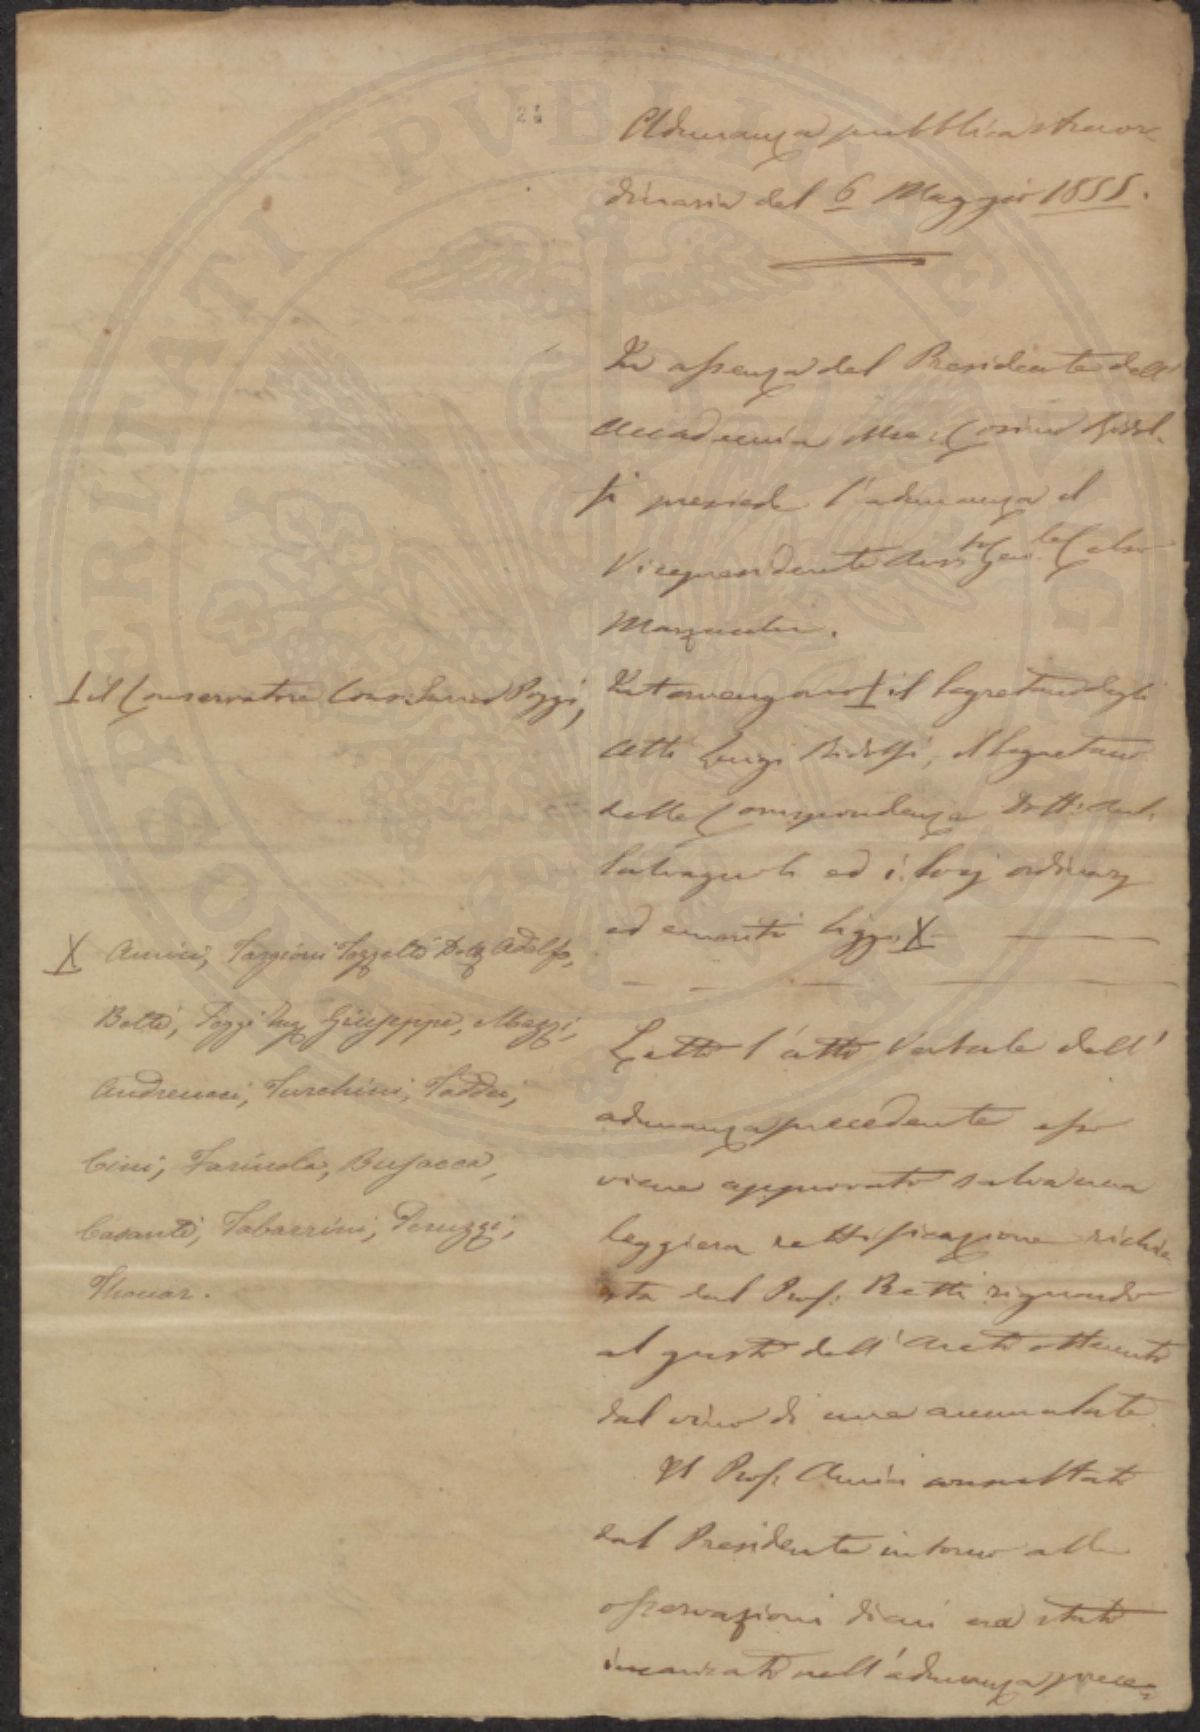 24
Adunanza pubblica straor
dinaria del 6 Maggio 1855.
In assenza del Presidente dell'
Accademia Mar: Cosimo Ridol-
fi presiede l'adunanza il
Vicepresidente
Marzucchi.
Intervengono I il Segretario degli
Atti Luigi Ridolfi, il Segretario
della Corrispondenza Dott:
Salvagnoli ed i Socj ordinarj
ed emeriti Sigg. X
Letto l'atto Verbale dell'
adunanza precedente esso
viene approvato salva una
leggiera rettificazione richie
sta dal Prof: Betti riguardo
al gusto dell' Aceto ottenuto
dal vino di uve ammalate.
Il Prof. Amici consultato
dal Presidente intorno alle
osservazioni di cui era stato
incaricato nell'adunanza prece=
I il Conservatore Cons: Poggi,
X Amici, Targioni Tozzetti Dott Adolfo,
Betti, Poggi Ing Giuseppe, Mazzi,
Andreucci, Turchini, Taddei,
Cini, Farinola, Busacca,
Casanti, Tabarrini, Peruzzi,
Thouar.
PROSPERITATI PVBLICAE